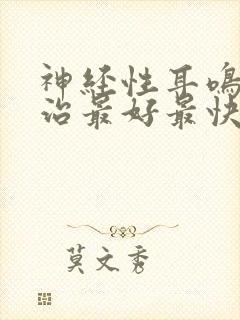 神经性耳鸣
治最好最快
莫文秀